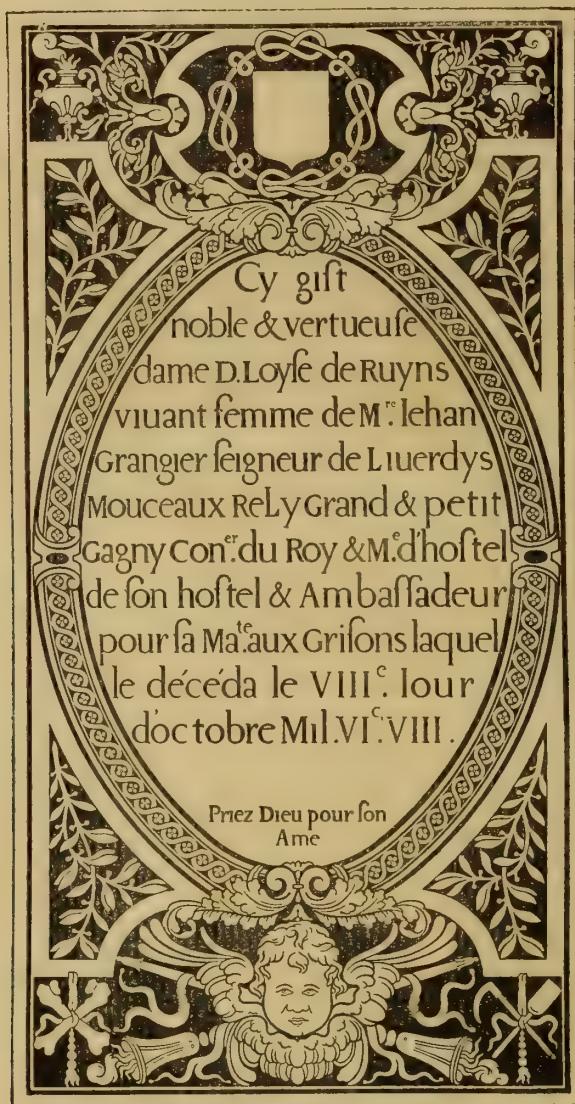 Cy giſt
noble & vertueuſe
dame D. Loyſe de Ruyns
viuant femme de M.re Iehan
Grangier ſeigneur de Liuerdys
Mouceaux ReLy Grand & petit
Gagny Con.er du Roy & M.e d'hoſtel
de ſon hoſtel & Ambaſſadeur
pour ſa Ma.te aux Griſons laquel
le décéda le VIII.e Iour
d'octobre Mil.VI.c VIII.
Priez Dieu pour ſon
Ame